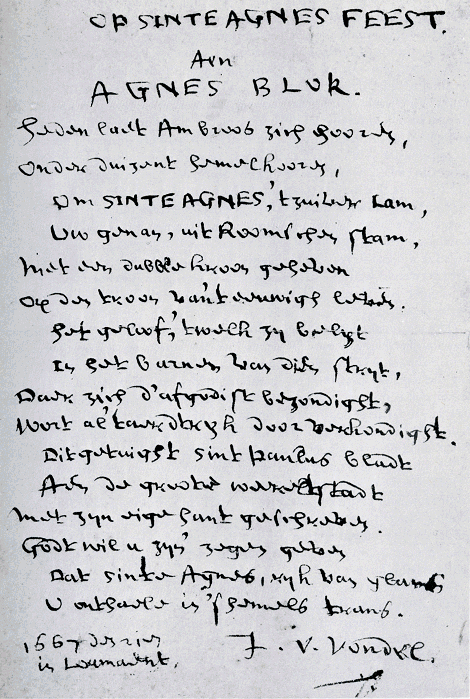 OP SINTE AGNES FEEST.
Aen
AGNES BLOK.
Heden laet Ambroos zich hooren,
Onder duizent hemelkooren,
Om SINTE AGNES, 't zuiver Lam,
Uw genan, uit Roomschen stam,
Met een dubble kroon geheven
Op den troon van't eeuwigh leven.
Het geloof, 't welk zy belyt
In het barnen van dien stryt,
Daer zich d'afgodist bezondight,
Wort al 't aerdtryk door verkondight.
Dit getuight sint Paulus bladt
Aen de groote wereltstadt
Met zyn eige hant geschreven.
Godt wil u zyn' zegen geven
Dat sinte Agnes, ryk van glans
U onthaele in 's hemels trans.
1667 den
in Loumaent.
J. V. Vondel.